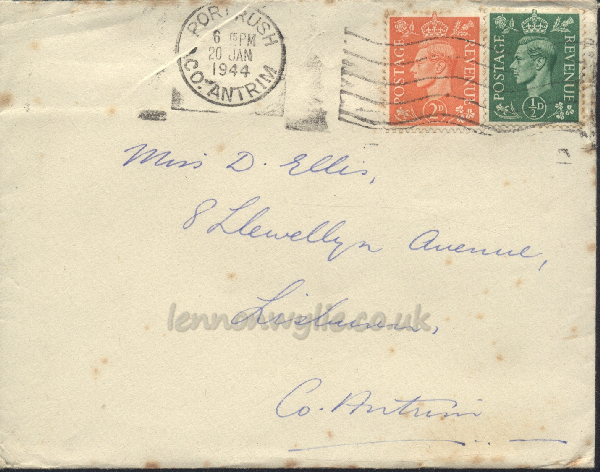 PORTRUSH
6 15PM
20 JAN
1944
CO. ANTRIM
POSTAGE REVENUE
2D
POSTAGE REVENUE
½D
Miss D. Ellis,
8 Llewellyn Avenue,
Lisburn,
lennonwylie.co.uk
Co. Antrim